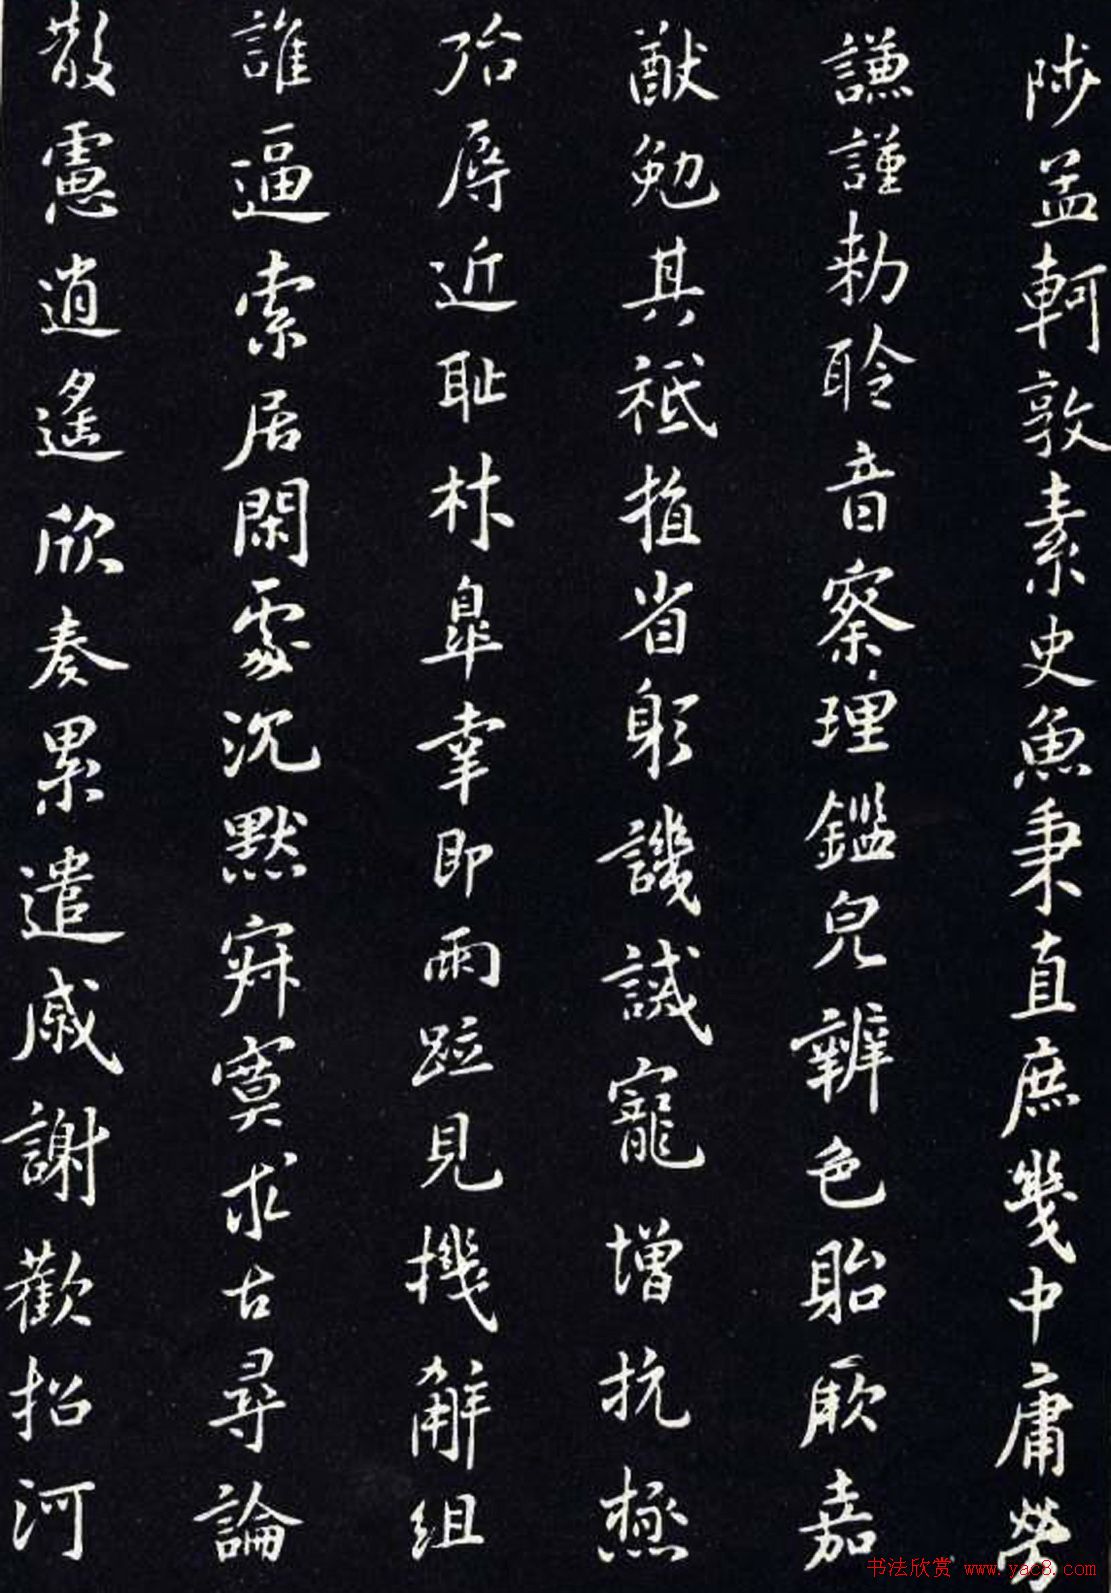 陟孟軻敦素史魚秉直庶幾中庸勞
謙謹勑聆音察理鑑皃辨色貽厥嘉
猷勉其祗植省躬譏誡寵增抗極
殆辱近恥林皐幸即兩疏見機解組
誰逼索居閑處沉默寂寞求古尋論
散慮逍遙欣奏累遣慼謝歡招河
书法欣赏 www.yac8.com